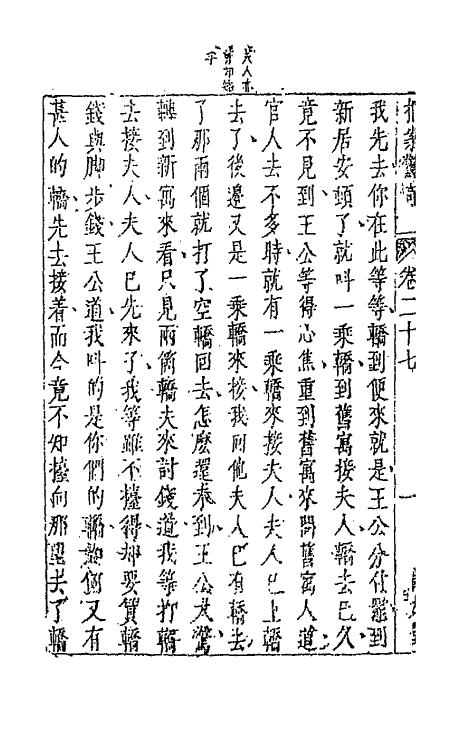 拍案驚奇 卷二十七 一
我先去你在此等等轎到便來就是王公分付罷到
新居安頓了就叫一乘轎到舊寓接夫人轎去已久
竟不見到王公等得心焦重到舊寓來問舊寓人道
官人去不多時就有一乘轎來接夫人夫人已上轎
去了後邊又是一乘轎來接我回他夫人已有轎去
了那兩個就打了空轎回去怎麼還未到王公大驚
轉到新寓來看只見兩個轎夫來討錢道我等打轎
去接夫人夫人已先來了我等雖不擡得却要賃轎
錢與脚步錢王公道我叫的是你們的轎如何又有
甚人的轎先去接着而今竟不知擡向那里去了轎